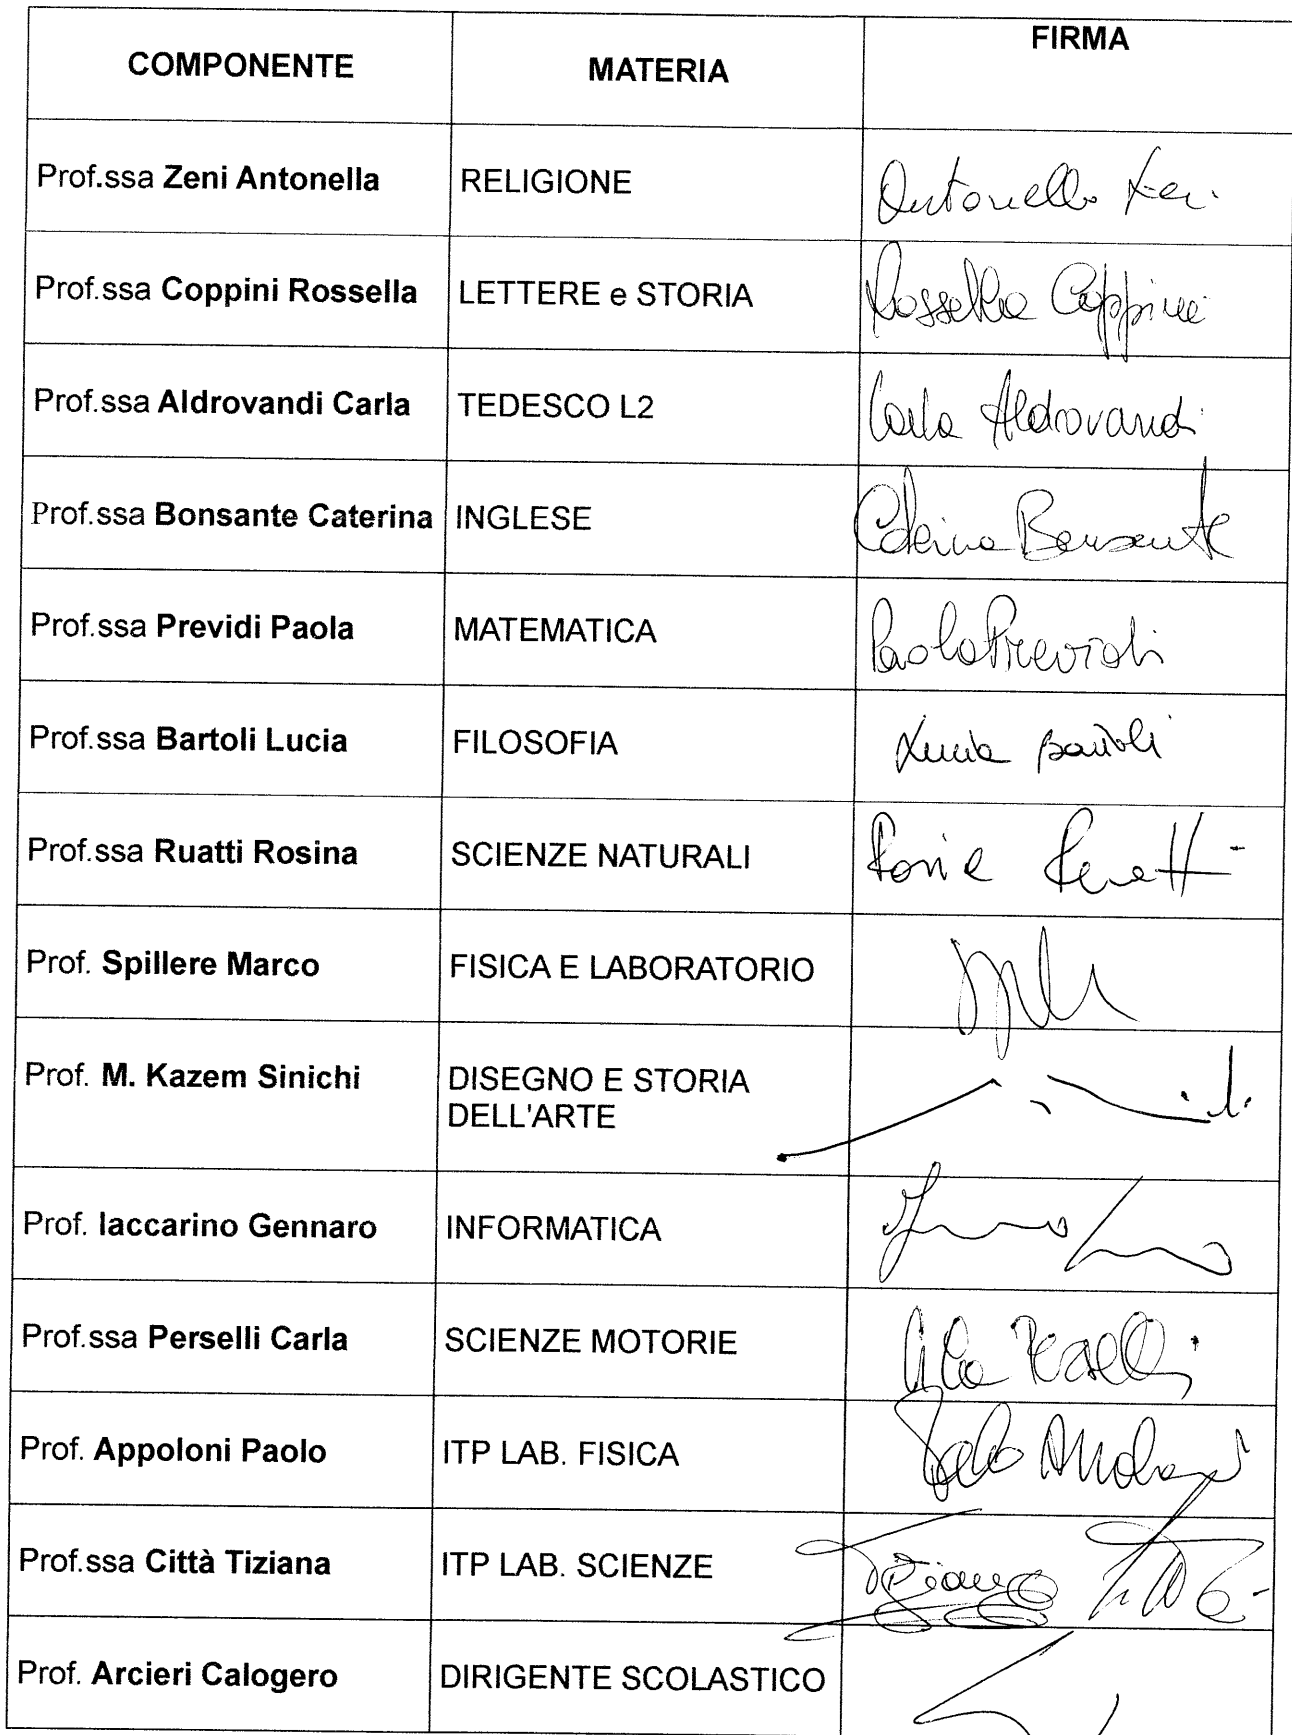 COMPONENTE MATERIA FIRMA
Prof.ssa Zeni Antonella RELIGIONE Antonella Zeni
Prof.ssa Coppini Rossella LETTERE e STORIA Rossella Coppini
Prof.ssa Aldrovandi Carla TEDESCO L2 Carla Aldrovandi
Prof.ssa Bonsante Caterina INGLESE Caterina Bonsante
Prof.ssa Previdi Paola MATEMATICA Paola Previdi
Prof.ssa Bartoli Lucia FILOSOFIA Lucia Bartoli
Prof.ssa Ruatti Rosina SCIENZE NATURALI
Prof. Spillere Marco FISICA E LABORATORIO
Prof. M. Kazem Sinichi DISEGNO E STORIA
DELL'ARTE
Prof. Iaccarino Gennaro INFORMATICA
Prof.ssa Perselli Carla SCIENZE MOTORIE Carla Perselli
Prof. Appoloni Paolo ITP LAB. FISICA Paolo
Prof.ssa Città Tiziana ITP LAB. SCIENZE Tiziana
Prof. Arcieri Calogero DIRIGENTE SCOLASTICO